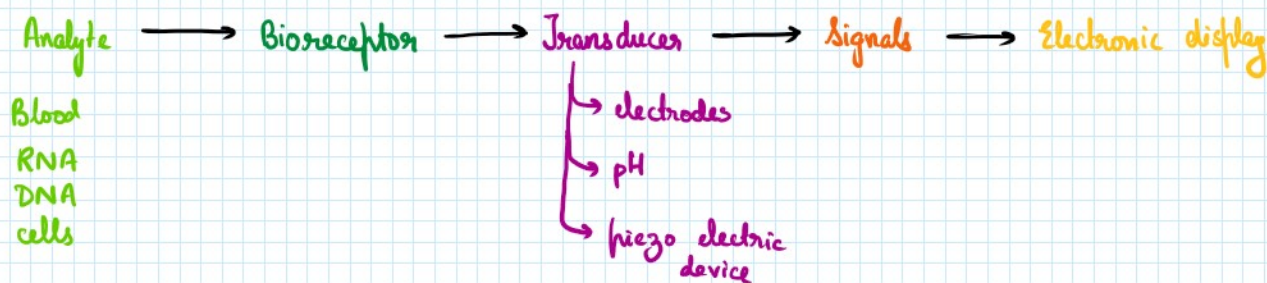 Analyte → Bioreceptor → Transducer → Signals → Electronic display
Blood
RNA
DNA
cells
electrodes
pH
piezo electric
device